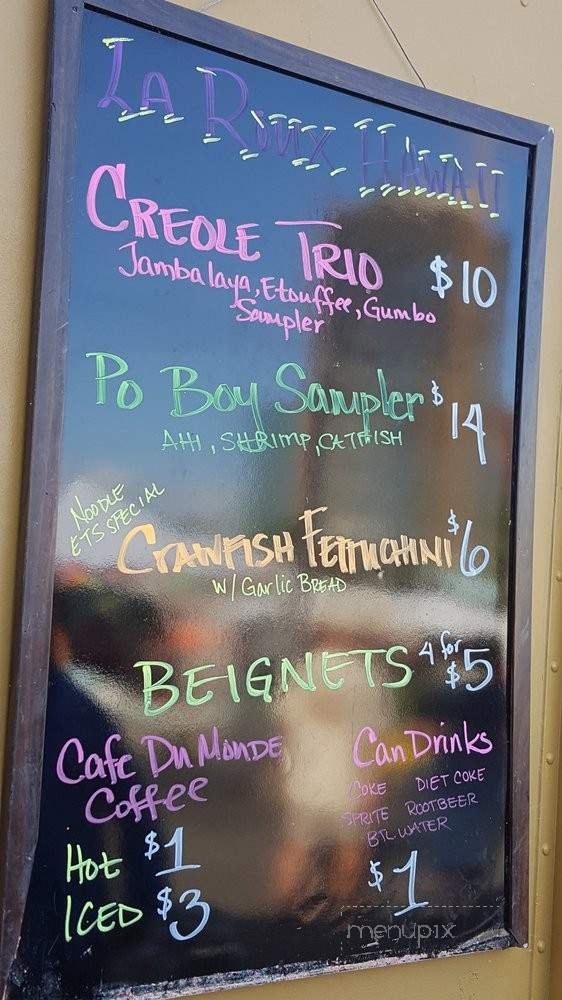 La Roux Hawaii
Creole Trio $10
Jambalaya, Etouffee, Gumbo
Sampler
Po Boy Sampler $14
AHI, SHRIMP, CATFISH
NOODLE
ETS SPECIAL
CRAWFISH FETTUCHINI $6
W/ Garlic BREAD
BEIGNETS 4 for $5
Cafe Du Monde
Coffee
Hot $1
ICED $3
Can Drinks
COKE DIET COKE
SPRITE ROOTBEER
BTL WATER
$1
menupix